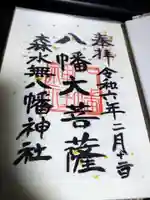 奉拝 令和六年二月
八幡大菩薩
森水無八幡神社